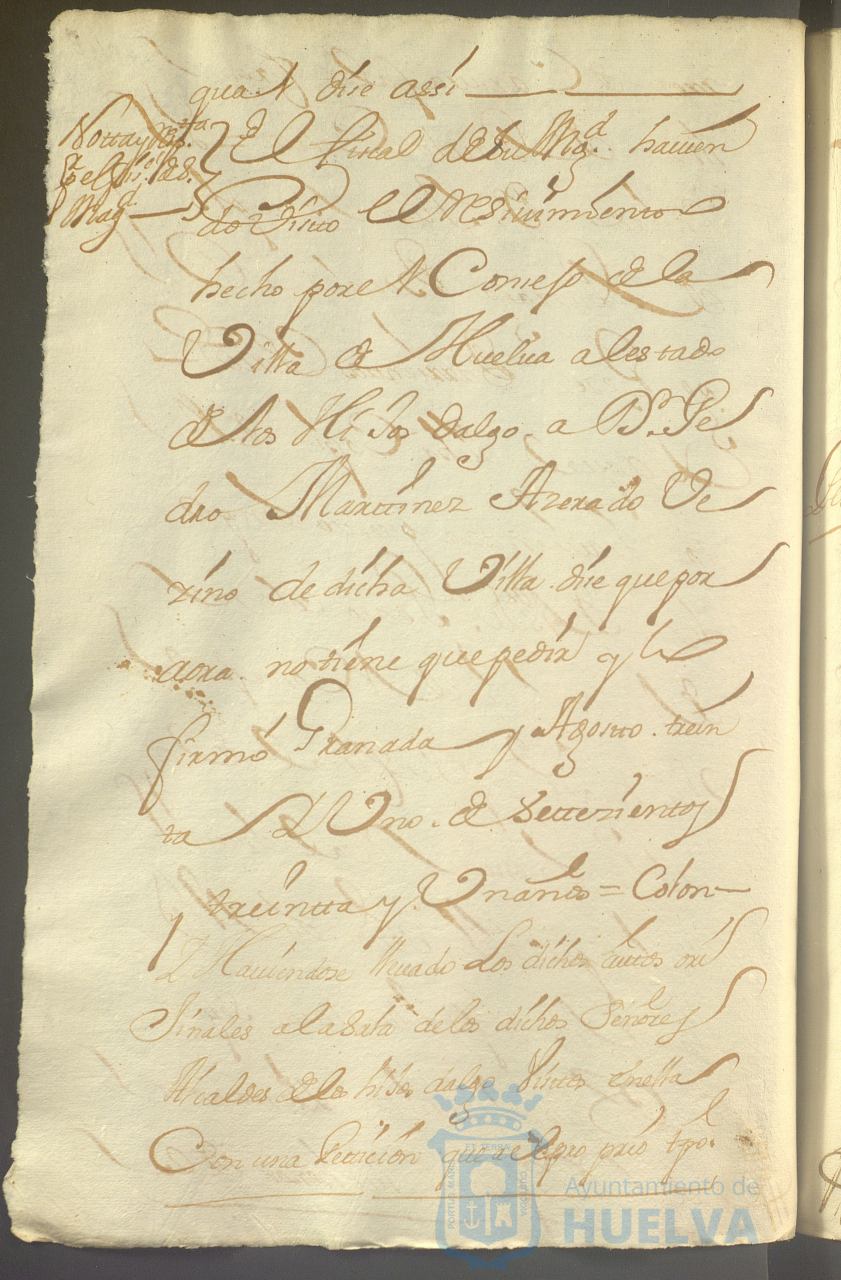 qual dise assi
Notta y resp.ta
del fis.l de su
Mag.d
El fiscal de su Mag.d havien
do visto el resivimiento
hecho por el Consejo de la
Villa de Huelva al estado
de los Hijos dalgo a D.n Pe
dro Marttinez Azerado Ve
zino de dicha Villa dise que por
aora no tiene que pedir y lo
firmó Granada y Agosto trein
ta y Uno de Settezientos
y treintta y Un años = Colon
Y Haviendose llevado Los dichos auttos ori
Jinales a la Sala de los dichos Señores
Alcaldes de los hijos dalgo Vistos en ella
Con una Petticion que
Ayuntamiento de
HUELVA